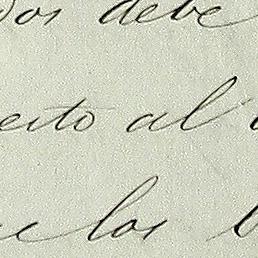 dos debe
erto al
los